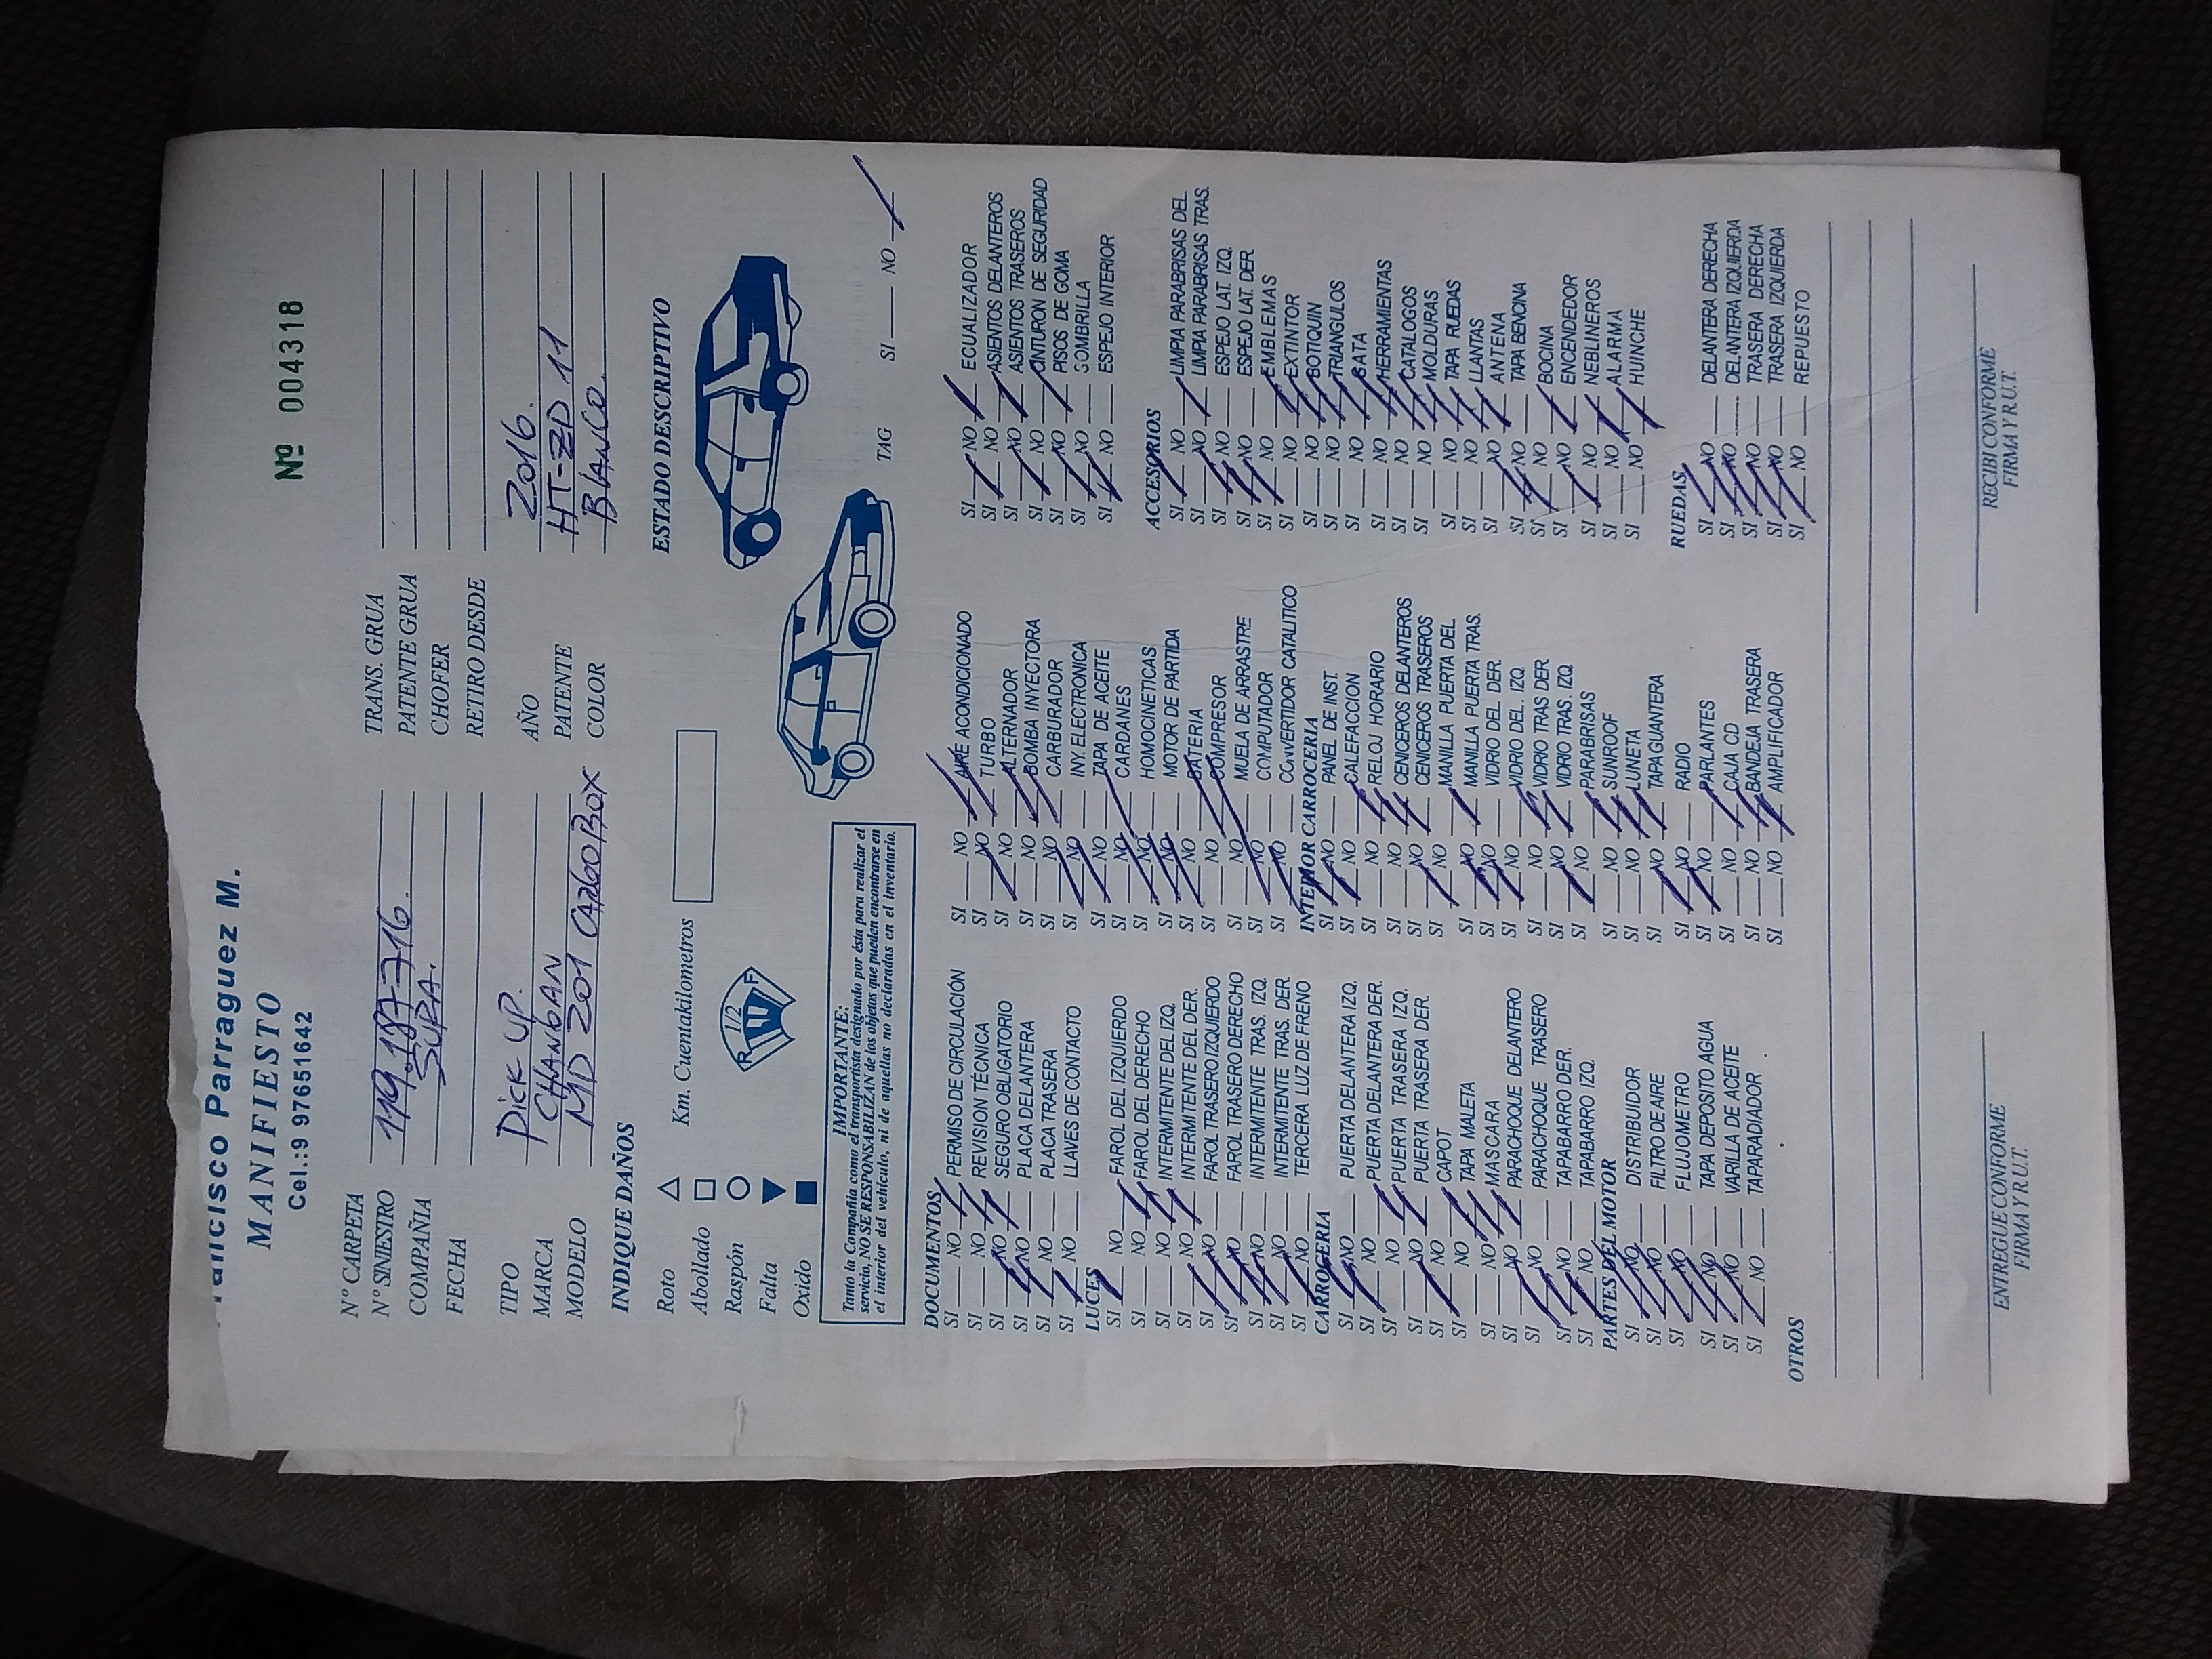 Francisco Parraguez M.
MANIFIESTO
Cel.:9 97651642
Nº 004318
Nº CARPETA
TRANS. GRUA
Nº SINIESTRO 119.187-716.
PATENTE GRUA
COMPAÑIA SURA.
CHOFER
FECHA
RETIRO DESDE
TIPO Pick UP.
AÑO 2016.
MARCA CHANGAN
PATENTE HT-ZD 11
MODELO MD 201 CARGO BOX
COLOR BLANCO.
INDIQUE DAÑOS
ESTADO DESCRIPTIVO
Roto
Km. Cuentakilometros
Abollado
Raspón
R 1/2 F
Falta
Oxido
IMPORTANTE:
Tanto la Compañía como el transportista designado por ésta para realizar el
servicio, NO SE RESPONSABILIZAN de los objetos que pueden encontrarse en
el interior del vehículo, ni de aquellas no declaradas en el inventario.
TAG SI NO
DOCUMENTOS
SI NO PERMISO DE CIRCULACIÓN
SI NO REVISION TÉCNICA
SI NO SEGURO OBLIGATORIO
SI NO PLACA DELANTERA
SI NO PLACA TRASERA
SI NO LLAVES DE CONTACTO
LUCES
SI NO FAROL DEL IZQUIERDO
SI NO FAROL DEL DERECHO
SI NO INTERMITENTE DEL IZQ.
SI NO INTERMITENTE DEL DER.
SI NO FAROL TRASERO IZQUIERDO
SI NO FAROL TRASERO DERECHO
SI NO INTERMITENTE TRAS. IZQ.
SI NO INTERMITENTE TRAS. DER.
SI NO TERCERA LUZ DE FRENO
CARROCERIA
SI NO PUERTA DELANTERA IZQ.
SI NO PUERTA DELANTERA DER.
SI NO PUERTA TRASERA IZQ.
SI NO PUERTA TRASERA DER.
SI NO CAPOT
SI NO TAPA MALETA
SI NO MASCARA
SI NO PARACHOQUE DELANTERO
SI NO PARACHOQUE TRASERO
SI NO TAPABARRO DER.
SI NO TAPABARRO IZQ.
PARTES DEL MOTOR
SI NO DISTRIBUIDOR
SI NO FILTRO DE AIRE
SI NO FLUJOMETRO
SI NO TAPA DEPOSITO AGUA
SI NO VARILLA DE ACEITE
SI NO TAPARADIADOR
SI NO AIRE ACONDICIONADO
SI NO TURBO
SI NO ALTERNADOR
SI NO BOMBA INYECTORA
SI NO CARBURADOR
SI NO INY. ELECTRONICA
SI NO TAPA DE ACEITE
SI NO CARDANES
SI NO HOMOCINETICAS
SI NO MOTOR DE PARTIDA
SI NO BATERIA
SI NO COMPRESOR
SI NO MUELA DE ARRASTRE
SI NO COMPUTADOR
SI NO CONVERTIDOR CATALITICO
INTERIOR CARROCERIA
SI NO PANEL DE INST.
SI NO CALEFACCION
SI NO RELOJ HORARIO
SI NO CENICEROS DELANTEROS
SI NO CENICEROS TRASEROS
SI NO MANILLA PUERTA DEL
SI NO MANILLA PUERTA TRAS.
SI NO VIDRIO DEL DER.
SI NO VIDRIO DEL. IZQ.
SI NO VIDRIO TRAS DER.
SI NO VIDRIO TRAS. IZQ.
SI NO PARABRISAS
SI NO SUNROOF
SI NO LUNETA
SI NO TAPAGUANTERA
SI NO RADIO
SI NO PARLANTES
SI NO CAJA CD
SI NO BANDEJA TRASERA
SI NO AMPLIFICADOR
SI NO ECUALIZADOR
SI NO ASIENTOS DELANTEROS
SI NO ASIENTOS TRASEROS
SI NO CINTURON DE SEGURIDAD
SI NO PISOS DE GOMA
SI NO SOMBRILLA
SI NO ESPEJO INTERIOR
ACCESORIOS
SI NO LIMPIA PARABRISAS DEL.
SI NO LIMPIA PARABRISAS TRAS.
SI NO ESPEJO LAT. IZQ.
SI NO ESPEJO LAT. DER.
SI NO EMBLEMAS
SI NO EXTINTOR
SI NO BOTIQUIN
SI NO TRIANGULOS
SI NO GATA
SI NO HERRAMIENTAS
SI NO CATALOGOS
SI NO MOLDURAS
SI NO TAPA RUEDAS
SI NO LLANTAS
SI NO ANTENA
SI NO TAPA BENCINA
SI NO BOCINA
SI NO ENCENDEDOR
SI NO NEBLINEROS
SI NO ALARMA
SI NO HUINCHE
RUEDAS
SI NO DELANTERA DERECHA
SI NO DELANTERA IZQUIERDA
SI NO TRASERA DERECHA
SI NO TRASERA IZQUIERDA
SI NO REPUESTO
OTROS
ENTREGUE CONFORME
FIRMA Y R.U.T.
RECIBI CONFORME
FIRMA Y R.U.T.